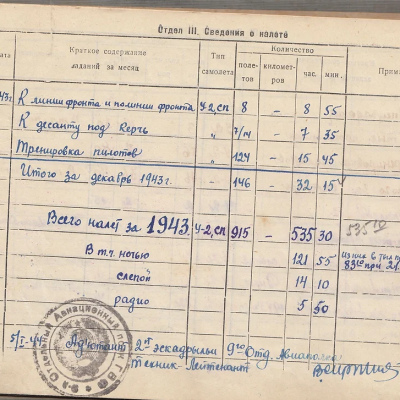 Отдел III. Сведения о налете
Краткое содержание заданий за месяц Тип самолета Количество
поле-тов километ-ров час. мин. Прим
43г. К линии фронта и по линии фронта У-2, СП 8 – 8 55
К десанту под Керчь " 7/14 – 7 35
Тренировка пилотов " 124 – 15 45
Итого за декабрь 1943г. – 146 – 32 15
Всего налет за 1943 У-2, СП 915 – 535 30 535 30
В т.ч. ночью 121 55
слепой 14 10
радио 5 50
5/I-44 Адъютант 2й эскадрильи 9го Отд. Авиаполка
Техник-Лейтенант
9-й Отдельный Авиационный полк ГВФ